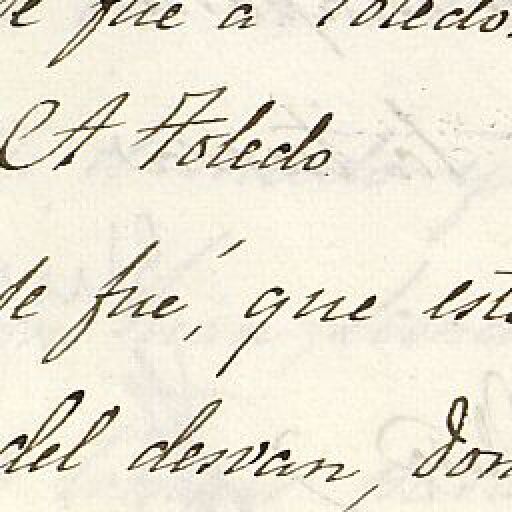 se fué a Toledo.
A Toledo.
se fué, que est
del desvan, don